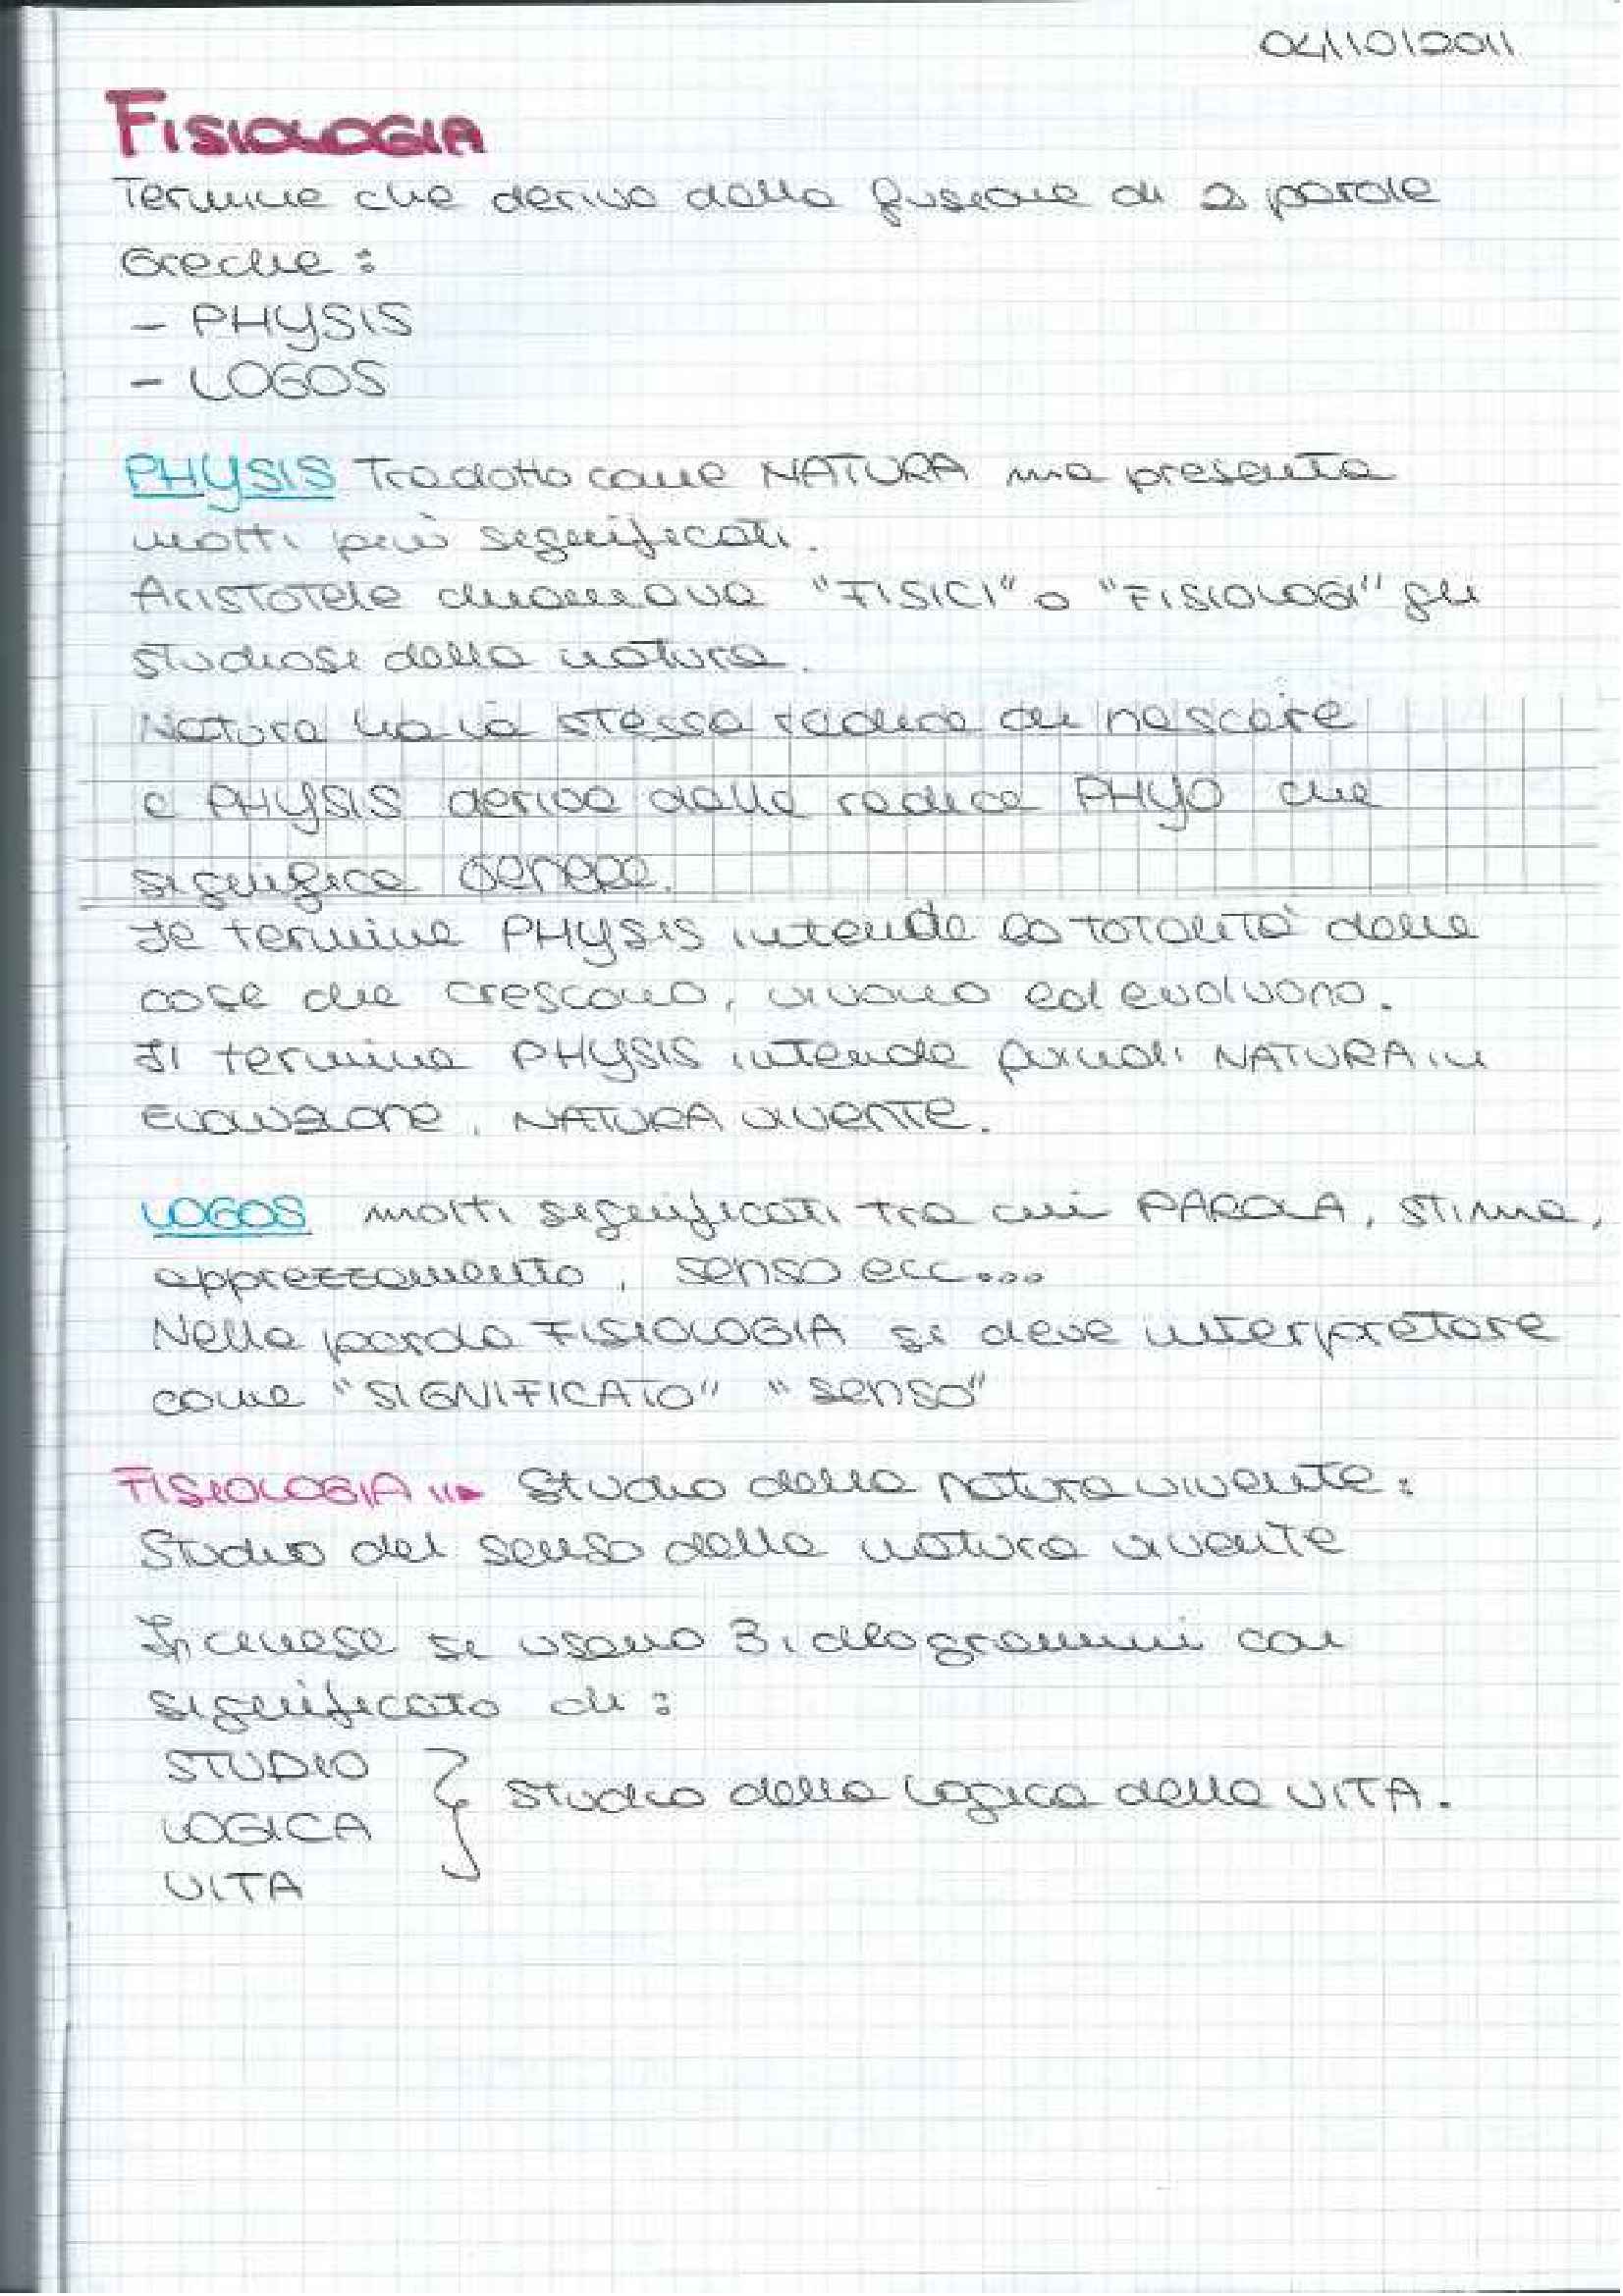 04/10/2011
FISIOLOGIA
Termine che deriva dalla fusione di 2 parole
Greche:
- PHYSIS
- LOGOS
PHYSIS Tradotto come NATURA ma presenta
molti più significati.
Aristotele chiamava "FISICI" o "FISIOLOGI" gli
studiosi della natura.
Natura ha la stessa radice di nascere
e PHYSIS deriva dalla radice PHYO che
significa Genere.
Il termine PHYSIS intende la totalità delle
cose che crescono, vivono ed evolvono.
Il termine PHYSIS intende quindi NATURA in
EVOLUZIONE, NATURA vivente.
LOGOS molti significati tra cui PAROLA, stima,
apprezzamento, senso ecc...
Nella parola FISIOLOGIA si deve interpretare
come "SIGNIFICATO" "senso"
FISIOLOGIA Studio della natura vivente:
Studio del senso della natura vivente
In cinese si usano 3 ideogrammi con
significato di:
STUDIO
LOGICA
VITA
Studio della logica della VITA.